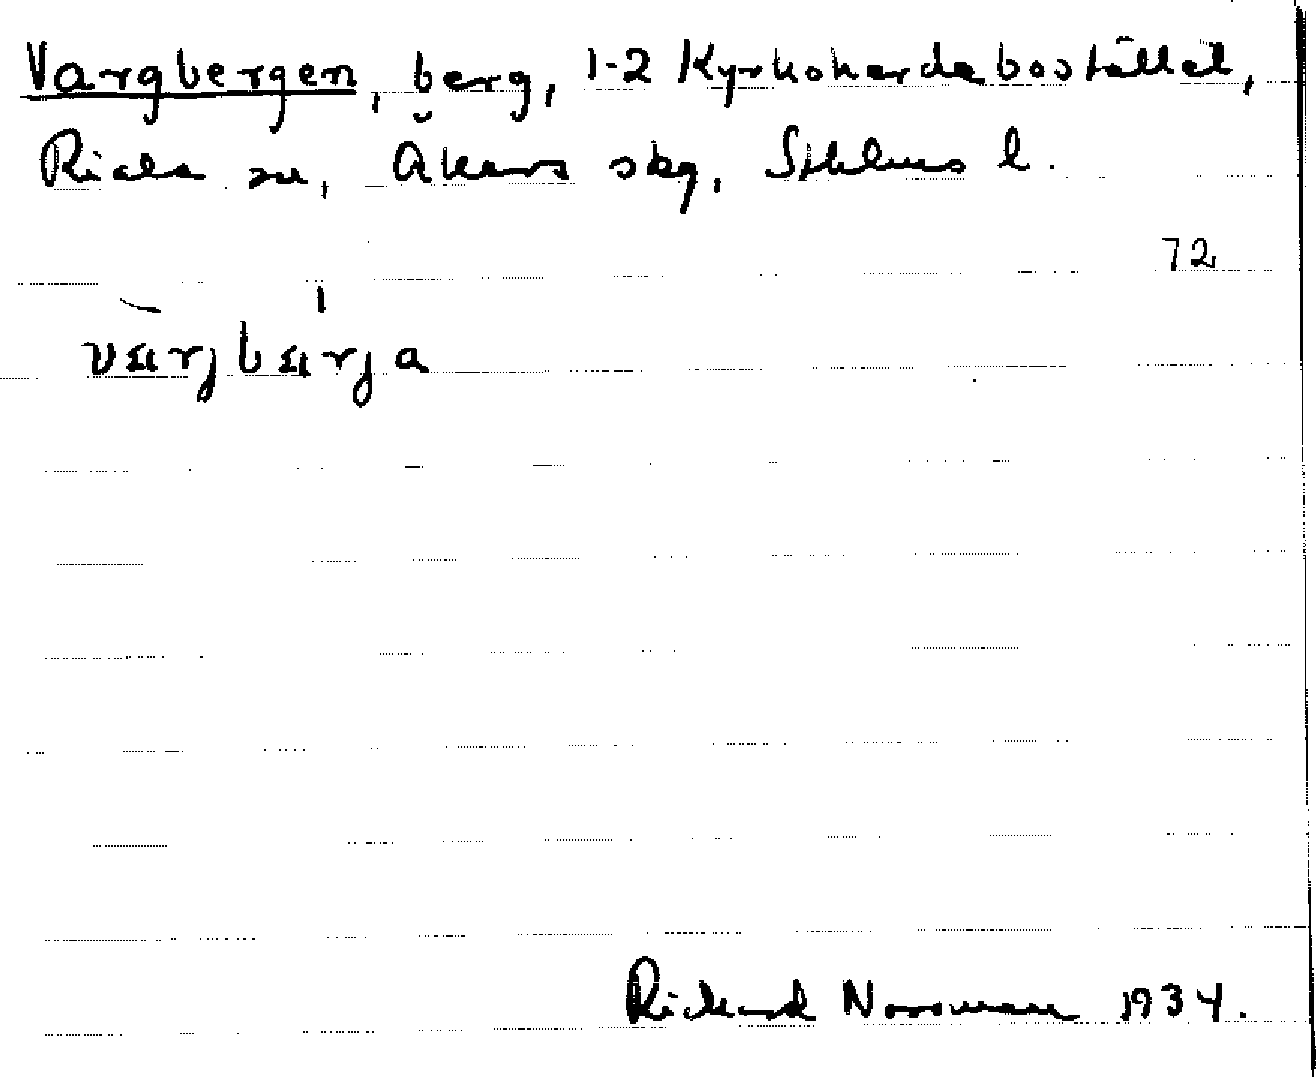 Vargbergen, berg, 1-2 Kyrkoherdebostället,
Riala sn, Åkers skg, Sthlms l.
72
värjbärja
Richard Norrman 1934.